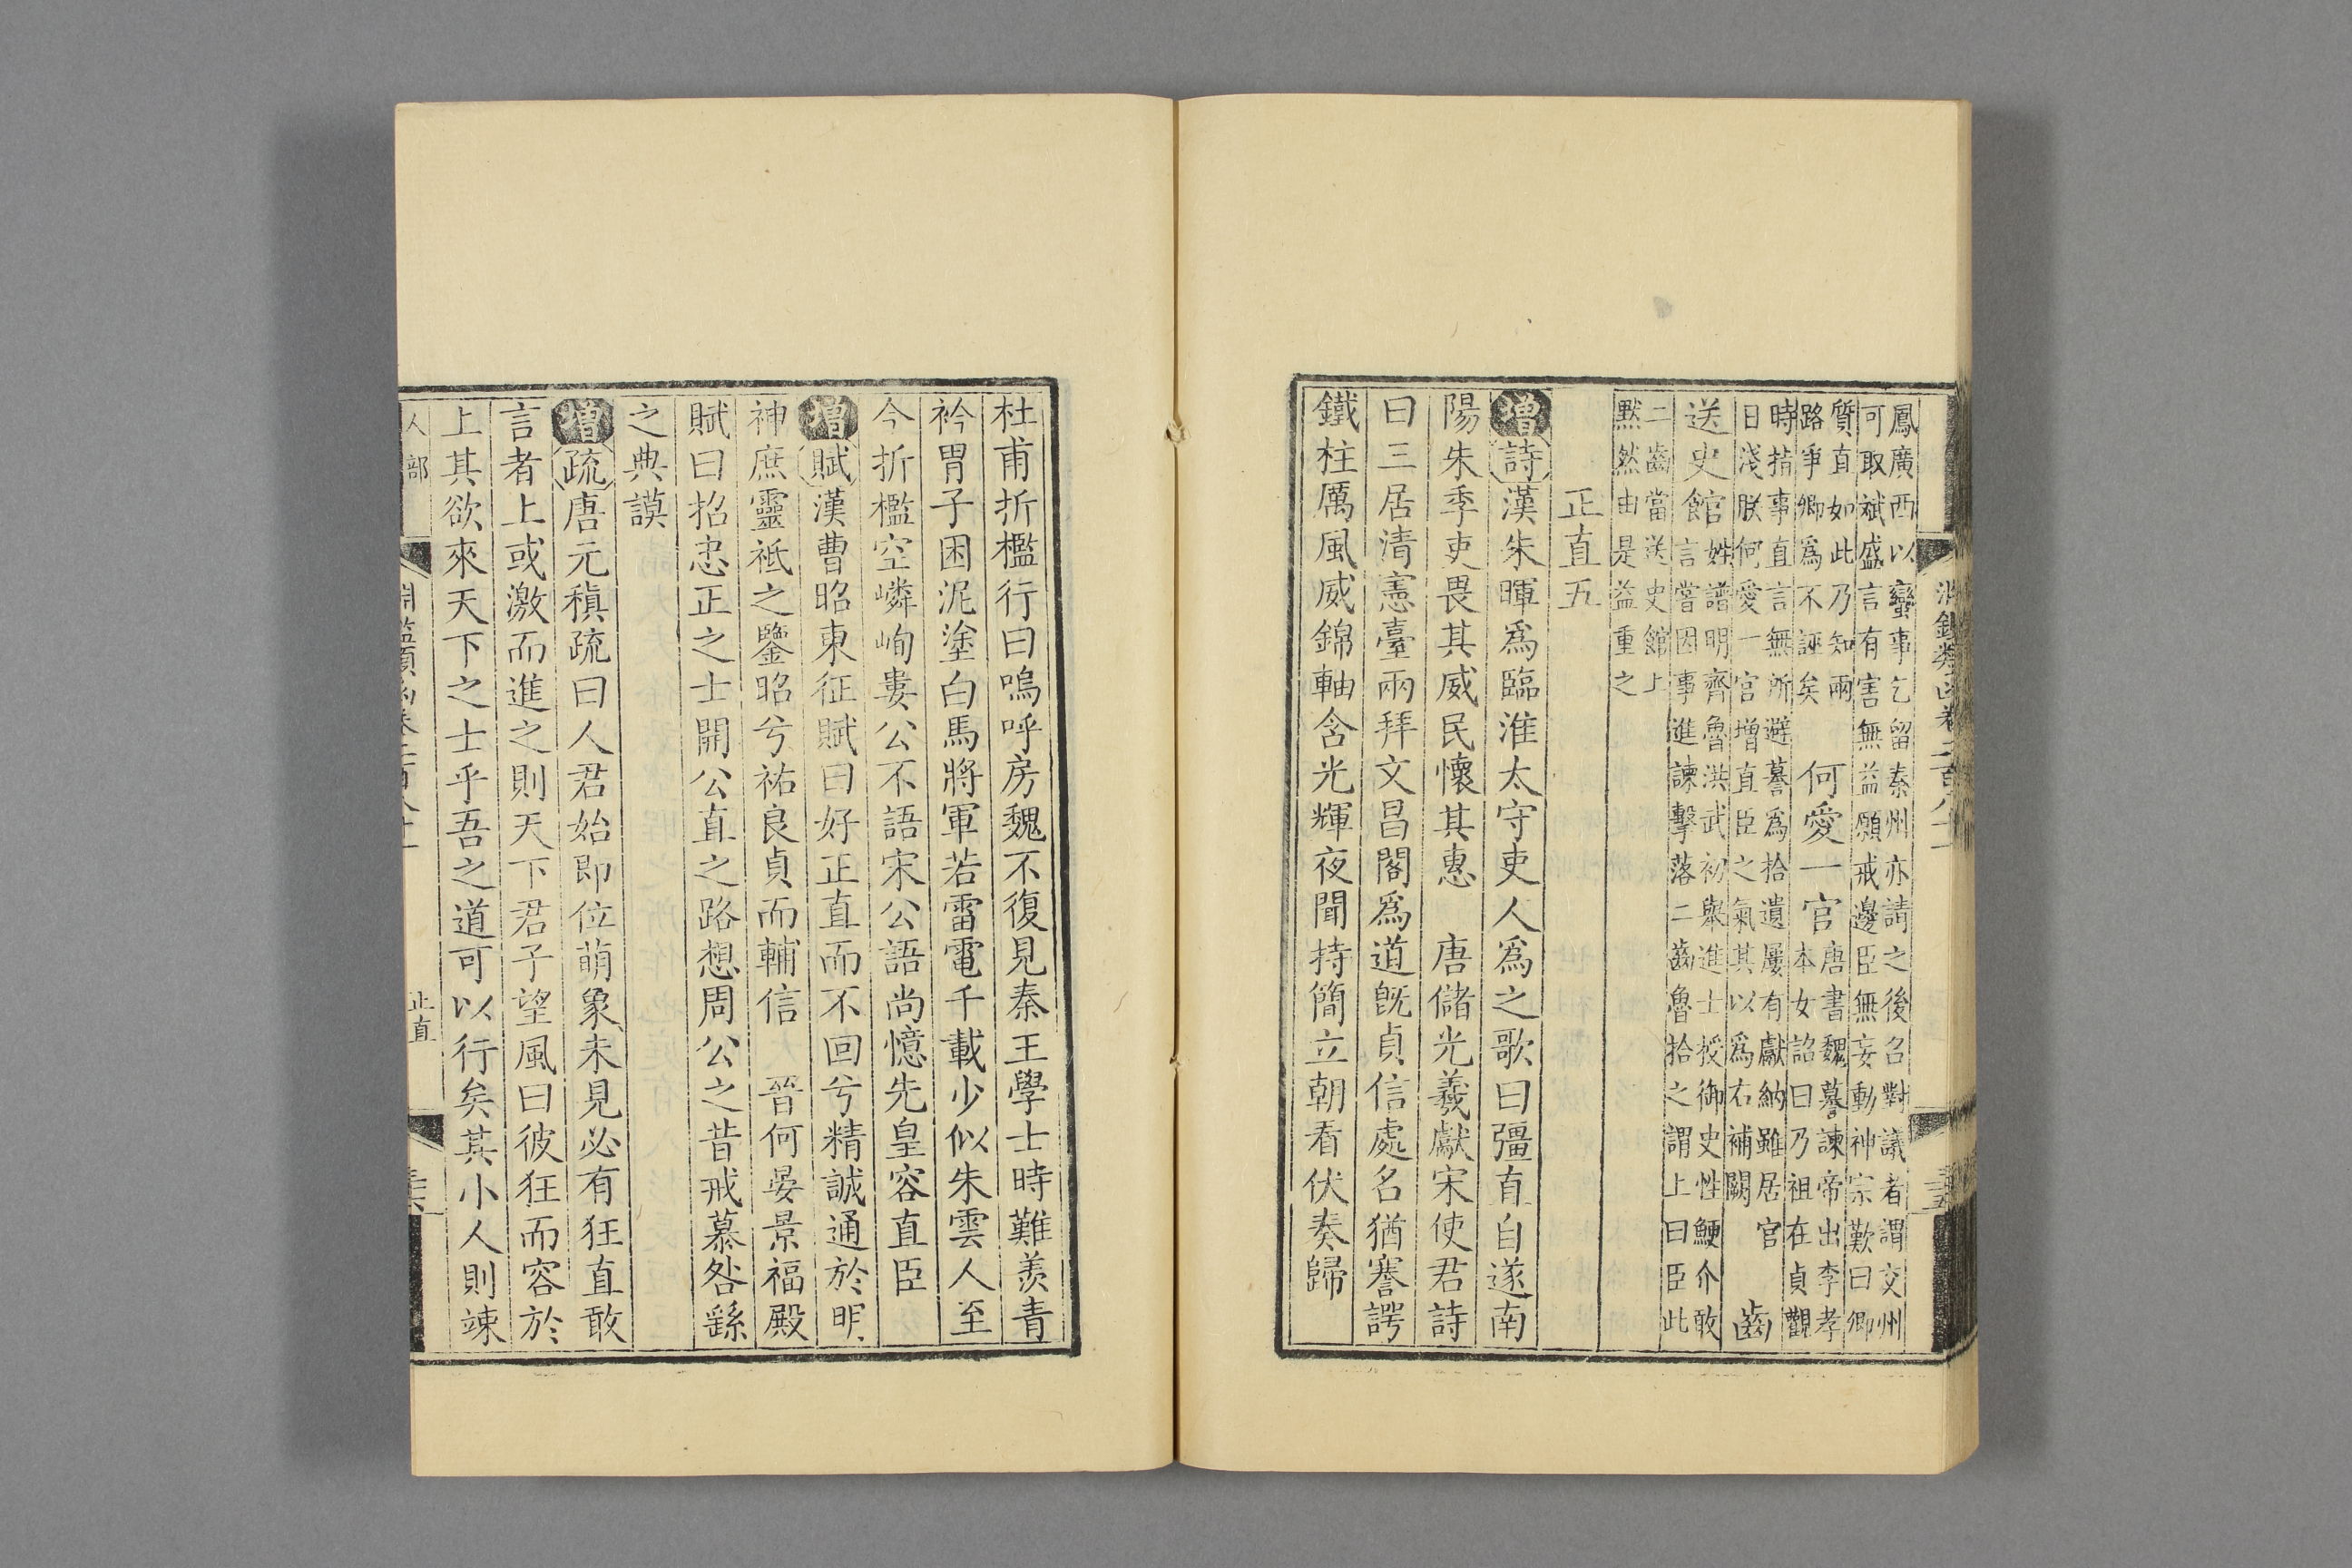 淵鑑類函卷二百八十一
三五
鳳廣西以蠻事乞留秦州亦請之後召對議者謂交州
可取斌盛言有害無益願戒邊臣無妄動神宗歎曰卿
質直如此乃知兩
路爭卿爲不誣矣
何愛一官
唐書魏謩諫帝出李孝
本女詔曰乃祖在貞觀
時指事直言無所避謩爲拾遺屢有獻納雖居官
日淺朕何愛一官增直臣之氣其以爲右補闕
齒
送史館
姓譜明齊魯洪武初舉進士授御史性鯁介敢
言嘗因事進諫擊落二齒魯拾之謂上曰臣此
二齒當送史館上
默然由是益重之
正直五
增詩漢朱暉爲臨淮太守吏人爲之歌曰彊直自遂南
陽朱季吏畏其威民懷其惠 唐儲光羲獻宋使君詩
曰三居清憲臺兩拜文昌閣爲道旣貞信處名猶謇諤
鐵柱厲風威錦軸含光輝夜聞持簡立朝看伏奏歸
杜甫折檻行曰嗚呼房魏不復見秦王學士時難羨青
衿胃子困泥塗白馬將軍若雷電千載少似朱雲人至
今折檻空嶙峋婁公不語宋公語尚憶先皇容直臣
增賦漢曹昭東征賦曰好正直而不回兮精誠通於明
神庶靈祗之鑒昭兮祐良貞而輔信 晉何晏景福殿
賦曰招忠正之士開公直之路想周公之昔戒慕咎繇
之典謨
增疏唐元稹疏曰人君始即位萌象未見必有狂直敢
言者上或激而進之則天下君子望風曰彼狂而容於
上其欲來天下之士乎吾之道可以行矣其小人則竦
人部
淵鑑類函卷二百八十一
正直
三六